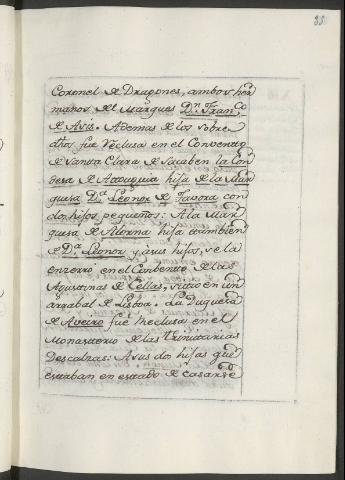 Coronel de Dragones, ambos her
manos del Marques Dn. Franco.
de Asis. Ademas de los sobre
dhos fue reclusa en el Convento
de Santa Clara de Sauben la Con
desa de Attouguia hija de la Mar
quesa Da. Leonor de Tavora con
dos hijos pequeños: A la Mar
quesa de Alorna hija tambien
de Da. Leonor y à sus hijos, se la
enzerro en el Conbento de las
Agustinas de Cellas, sitio en un
arrabal de Lisboa. La Duquesa
de Aveiro fue Reclusa en el
Monasterio de las trinitarias
Descalzas: A sus dos hijas que
estaban en estado de casarse